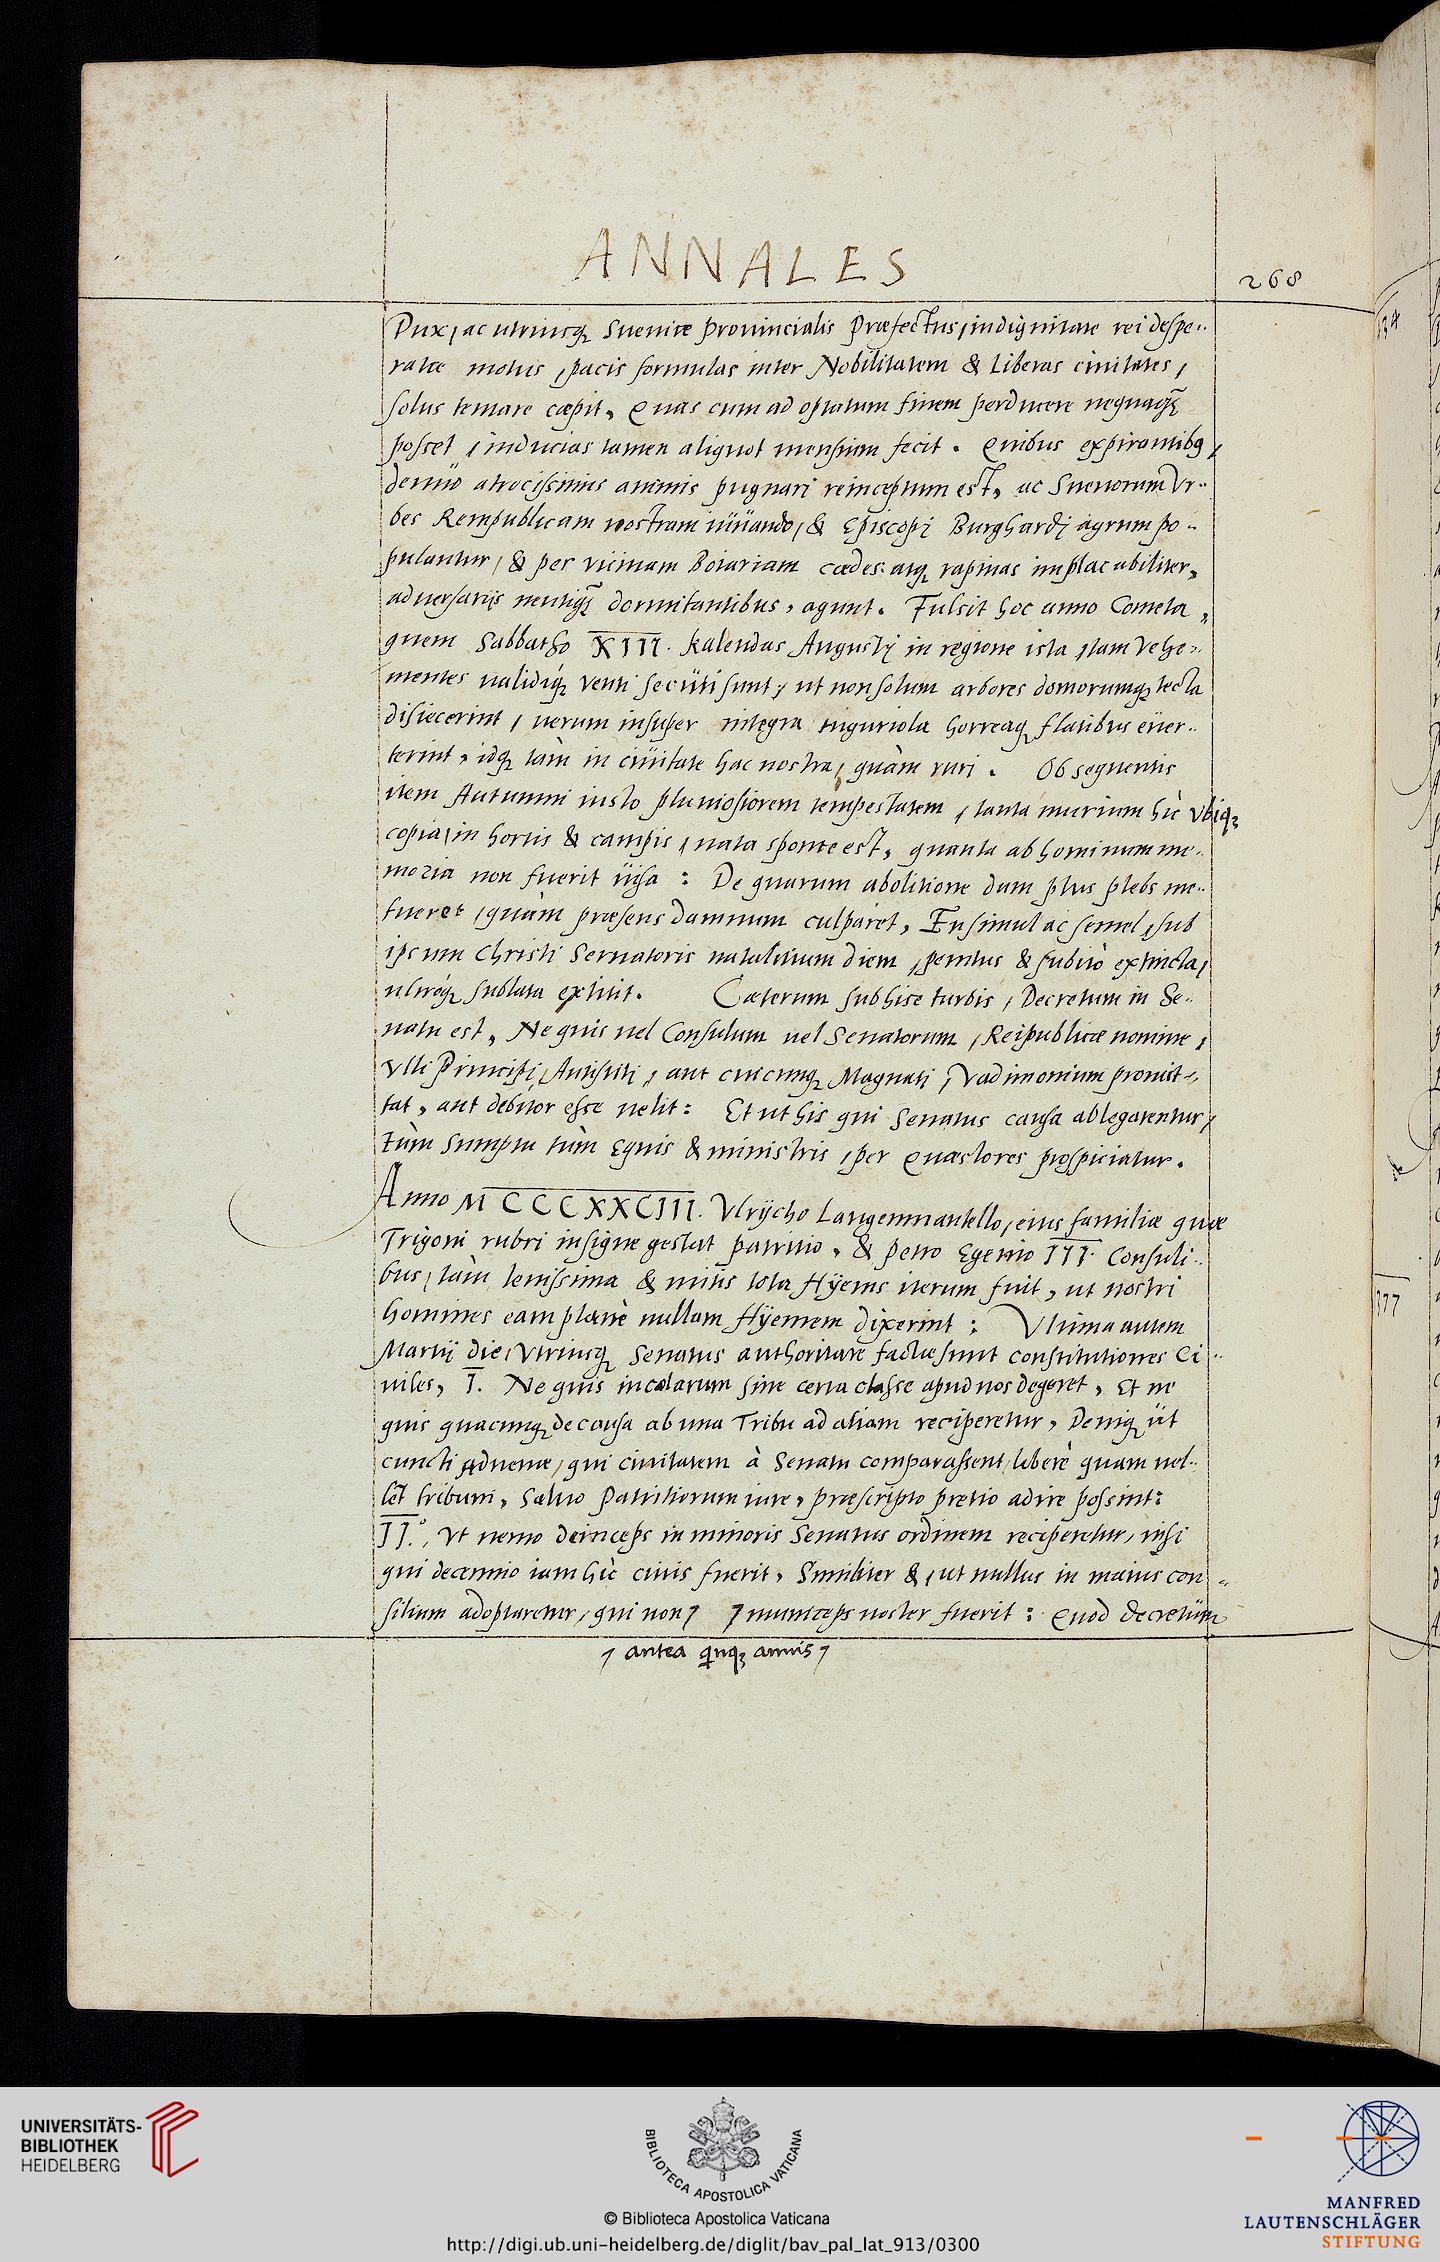 ANNALES
268
Dux, ac utriusq; Sueuiæ prouincialis Præfectus, indignitate rei despe-
ratæ motus, pacis formulas inter Nobilitatem & Liberas ciuitates,
solus tentare cœpit, Quas cum ad optatum finem perducere nequaq̃
posset, inducias tamen aliquot mensium fecit. Quibus expirantibq,
denuo atrocissimis animis pugnari reinceptum est, ac Sueuorum Vr-
bes Rempublicam nostram iuuando, & Episcopi Burghardi agrum po-
pulantur, & per vicinam Boiariam cædes atq; rapinas implacabiliter,
aduersarijs neutiq̃ dormitantibus, agunt. Fulsit hoc anno Cometa,
quem Sabbatho XIII. kalendas Augusti in regione ista, tam vehe-
mentes ualidiq́; venti secuti sunt, ut non solum arbores domorumq; tecta
disiecerint, uerum insuper integra tuguriola horreaq; flatibus euer-
terint, idq; tàm in ciuitate hac nostra, quàm ruri. Ob sequentis
item Autumni iusto pluuiosiorem tempestatem, tanta murium hìc vbiq;
copia, in hortis & campis, nata sponte est, quanta ab hominum me-
moria non fuerit uisa: De quarum abolitione dum plus plebs me-
tueret, quàm præsens damnum culparet, En simul ac semel, sub
ipsum Christi Seruatoris natalitium diem, penitus & subitò extincta,
ultròq́; sublata extitit. Cæterum sub hisce turbis, Decretum in Se-
natu est, Ne quis uel Consulum uel Senatorum, Reipublicæ nomine,
Vlli Principi, Antistiti, aut cuicunq; Magnati, Vadimonium promit-
tat, aut debitor esse uelit: Et ut his qui Senatus causa ablegarentur,
tùm sumptu tùm Equis & ministris, per Quæstores prospiciatur.
Anno MCCCXXCIII. Vlrycho Langenmantello, eius familiæ quæ
Trigoni rubri insigne gestat patritio, & Petro Egenio III. Consuli-
bus, tàm lenissima & mitis tota Hyems iterum fuit, ut nostri
homines eam planè nullam Hyemem dixerint: Vltima autem
Martij die, Vtriusq; Senatus authoritate factæ sunt constitutiones Ci-
uiles, I. Ne quis incolarum sine certa classe apud nos degeret, Et ne
quis quacunq; de causa ab una Tribu ad aliam reciperetur, Deniq; ut
cuncti aduenæ, qui ciuitatem à Senatu comparassent, liberè quam uel-
let tribum, saluo Patritiorum iure, præscripto pretio adire possint:
II.°, Vt nemo deinceps in minoris Senatus ordinem reciperetur, nisi
qui decennio iam hìc ciuis fuerit, Similiter &, ut nullus in maius con-
silium adoptaretur, qui non ⁊ ⁊ municeps noster fuerit: Quod decretum
⁊ antea quinq; annis ⁊
134
177
UNIVERSITÄTS-
BIBLIOTHEK
HEIDELBERG
BIBLIOTECA APOSTOLICA VATICANA
© Biblioteca Apostolica Vaticana
http://digi.ub.uni-heidelberg.de/diglit/bav_pal_lat_913/0300
MANFRED
LAUTENSCHLÄGER
STIFTUNG